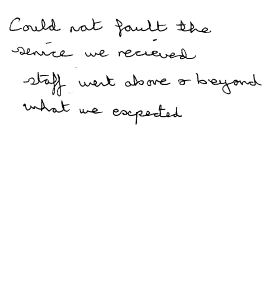 Could not fault the
service we recieved
staff went above & beyond
what we expected